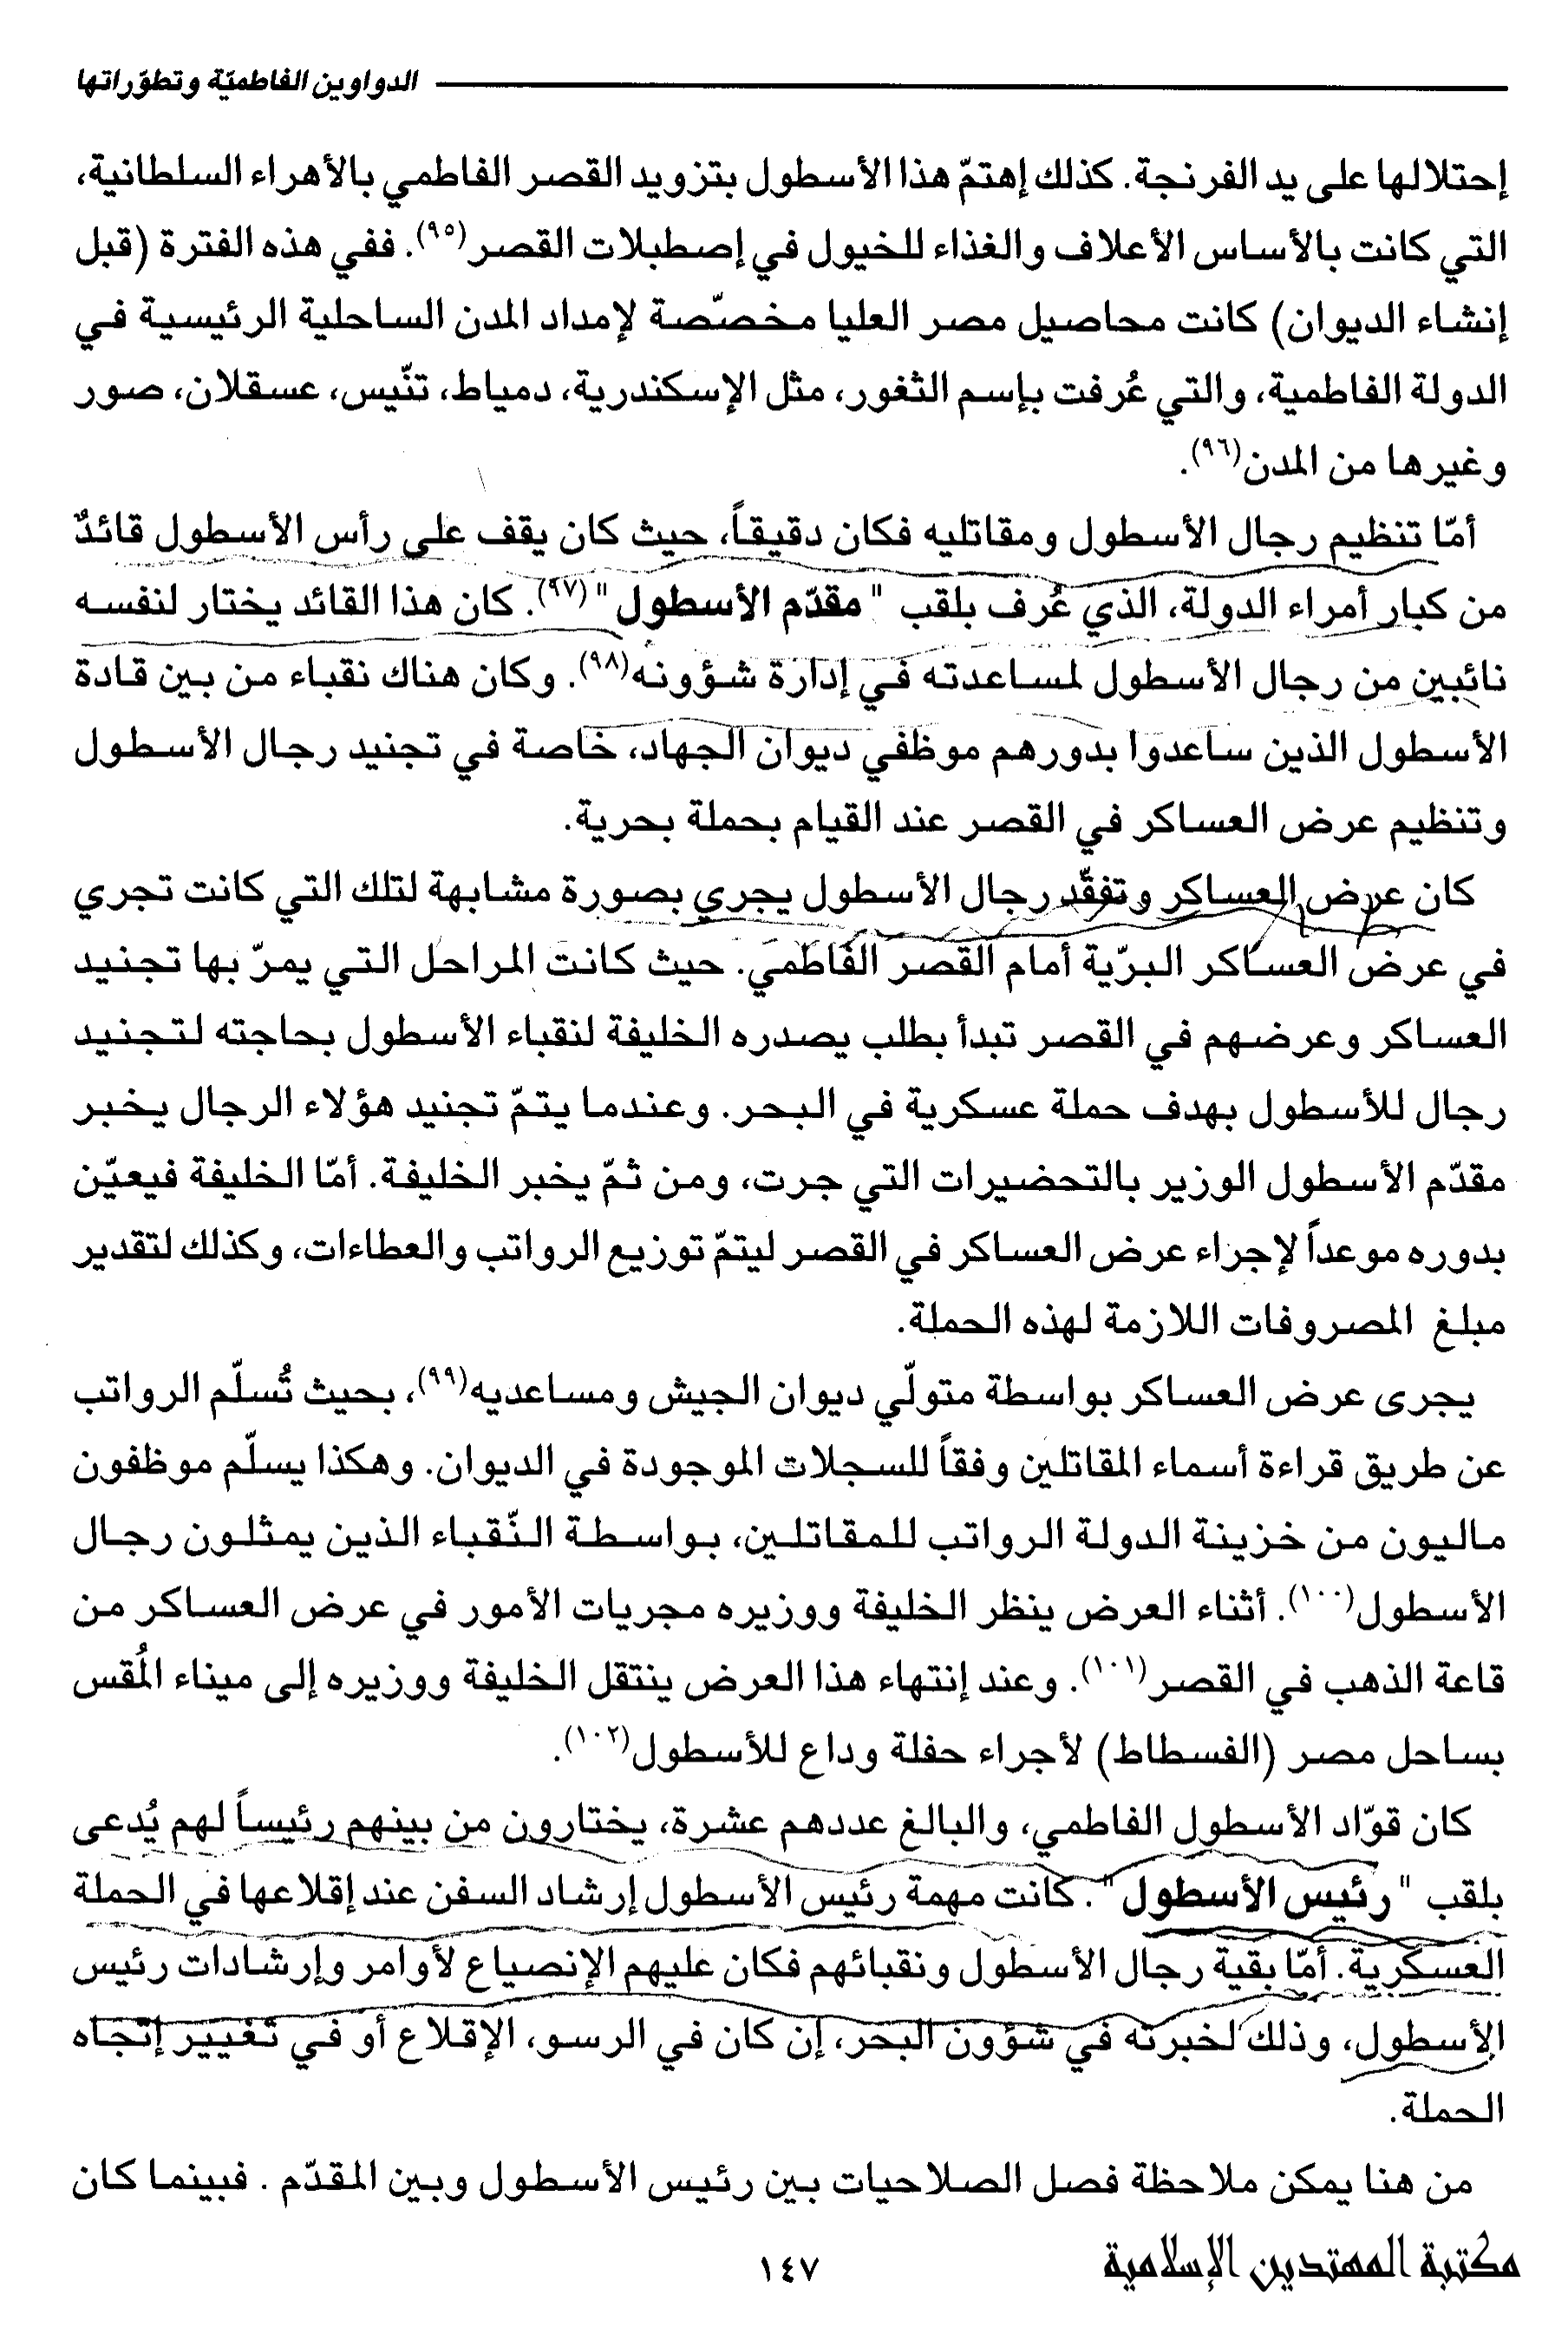 الدواوين الفاطميّة وتطوّراتها
إحتلالها على يد الفرنجة. كذلك إهتمّ هذا الأسطول بتزويد القصر الفاطمي بالأهراء السلطانية،
التي كانت بالأساس الأعلاف والغذاء للخيول في إصطبلات القصر(٩٥). ففي هذه الفترة (قبل
إنشاء الديوان) كانت محاصيل مصر العليا مخصّصة لإمداد المدن الساحلية الرئيسية في
الدولة الفاطمية، والتي عُرفت بإسم الثغور، مثل الإسكندرية، دمياط، تنّيس، عسقلان، صور
وغيرها من المدن(٩٦).
أمّا تنظيم رجال الأسطول ومقاتليه فكان دقيقاً، حيث كان يقف على رأس الأسطول قائدٌ
من كبار أمراء الدولة، الذي عُرف بلقب "مقدّم الأسطول"(٩٧). كان هذا القائد يختار لنفسه
نائبين من رجال الأسطول لمساعدته في إدارة شؤونه(٩٨). وكان هناك نقباء من بين قادة
الأسطول الذين ساعدوا بدورهم موظفي ديوان الجهاد، خاصة في تجنيد رجال الأسطول
وتنظيم عرض العساكر في القصر عند القيام بحملة بحرية.
كان عرض العساكر وتفقّد رجال الأسطول يجري بصورة مشابهة لتلك التي كانت تجري
في عرض العساكر البرّية أمام القصر الفاطمي. حيث كانت المراحل التي يمرّ بها تجنيد
العساكر وعرضهم في القصر تبدأ بطلب يصدره الخليفة لنقباء الأسطول بحاجته لتجنيد
رجال للأسطول بهدف حملة عسكرية في البحر. وعندما يتمّ تجنيد هؤلاء الرجال يخبر
مقدّم الأسطول الوزير بالتحضيرات التي جرت، ومن ثمّ يخبر الخليفة. أمّا الخليفة فيعيّن
بدوره موعداً لإجراء عرض العساكر في القصر ليتمّ توزيع الرواتب والعطاءات، وكذلك لتقدير
مبلغ المصروفات اللازمة لهذه الحملة.
يجرى عرض العساكر بواسطة متولّي ديوان الجيش ومساعديه(٩٩)، بحيث تُسلّم الرواتب
عن طريق قراءة أسماء المقاتلين وفقاً للسجلات الموجودة في الديوان. وهكذا يسلّم موظفون
ماليون من خزينة الدولة الرواتب للمقاتلين، بواسطة النّقباء الذين يمثلون رجال
الأسطول(١٠٠). أثناء العرض ينظر الخليفة ووزيره مجريات الأمور في عرض العساكر من
قاعة الذهب في القصر(١٠١). وعند إنتهاء هذا العرض ينتقل الخليفة ووزيره إلى ميناء المُقس
بساحل مصر (الفسطاط) لأجراء حفلة وداع للأسطول(١٠٢).
كان قوّاد الأسطول الفاطمي، والبالغ عددهم عشرة، يختارون من بينهم رئيساً لهم يُدعى
بلقب "رئيس الأسطول". كانت مهمة رئيس الأسطول إرشاد السفن عند إقلاعها في الحملة
العسكرية. أمّا بقية رجال الأسطول ونقبائهم فكان عليهم الإنصياع لأوامر وإرشادات رئيس
الأسطول، وذلك لخبرته في شؤون البحر، إن كان في الرسو، الإقلاع أو في تغيير إتجاه
الحملة.
من هنا يمكن ملاحظة فصل الصلاحيات بين رئيس الأسطول وبين المقدّم . فبينما كان
١٤٧
مكتبة المهتدين الإسلامية